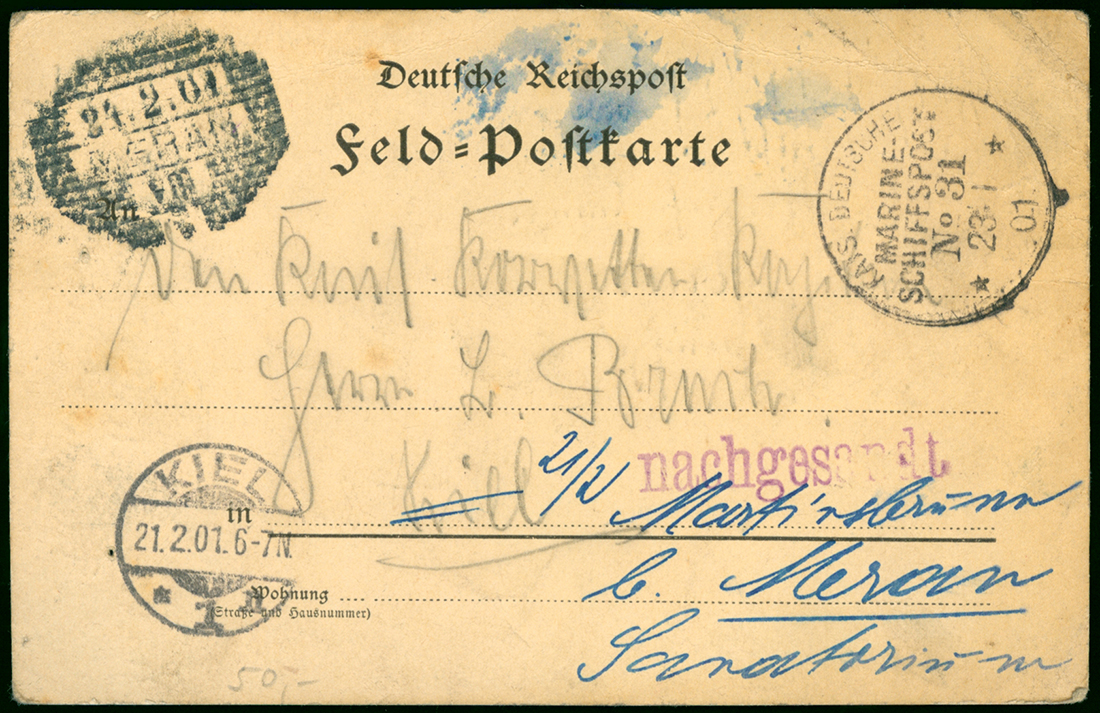 24.2.01
MERAN
VIII
Deutsche Reichspost
Feld-Postkarte
KAIS. DEUTSCHE
MARINE-
SCHIFFSPOST
No 31
23 1
01
An
Den Kais. Korvetten-Kap.
Herrn L. Bruch
Kiel
nachgesandt
21/2
Martinsbrunn
b. Meran
Sanatorium
KIEL
21.2.01.6-7N.
1
in
Wohnung
(Straße und Hausnummer)
50,-